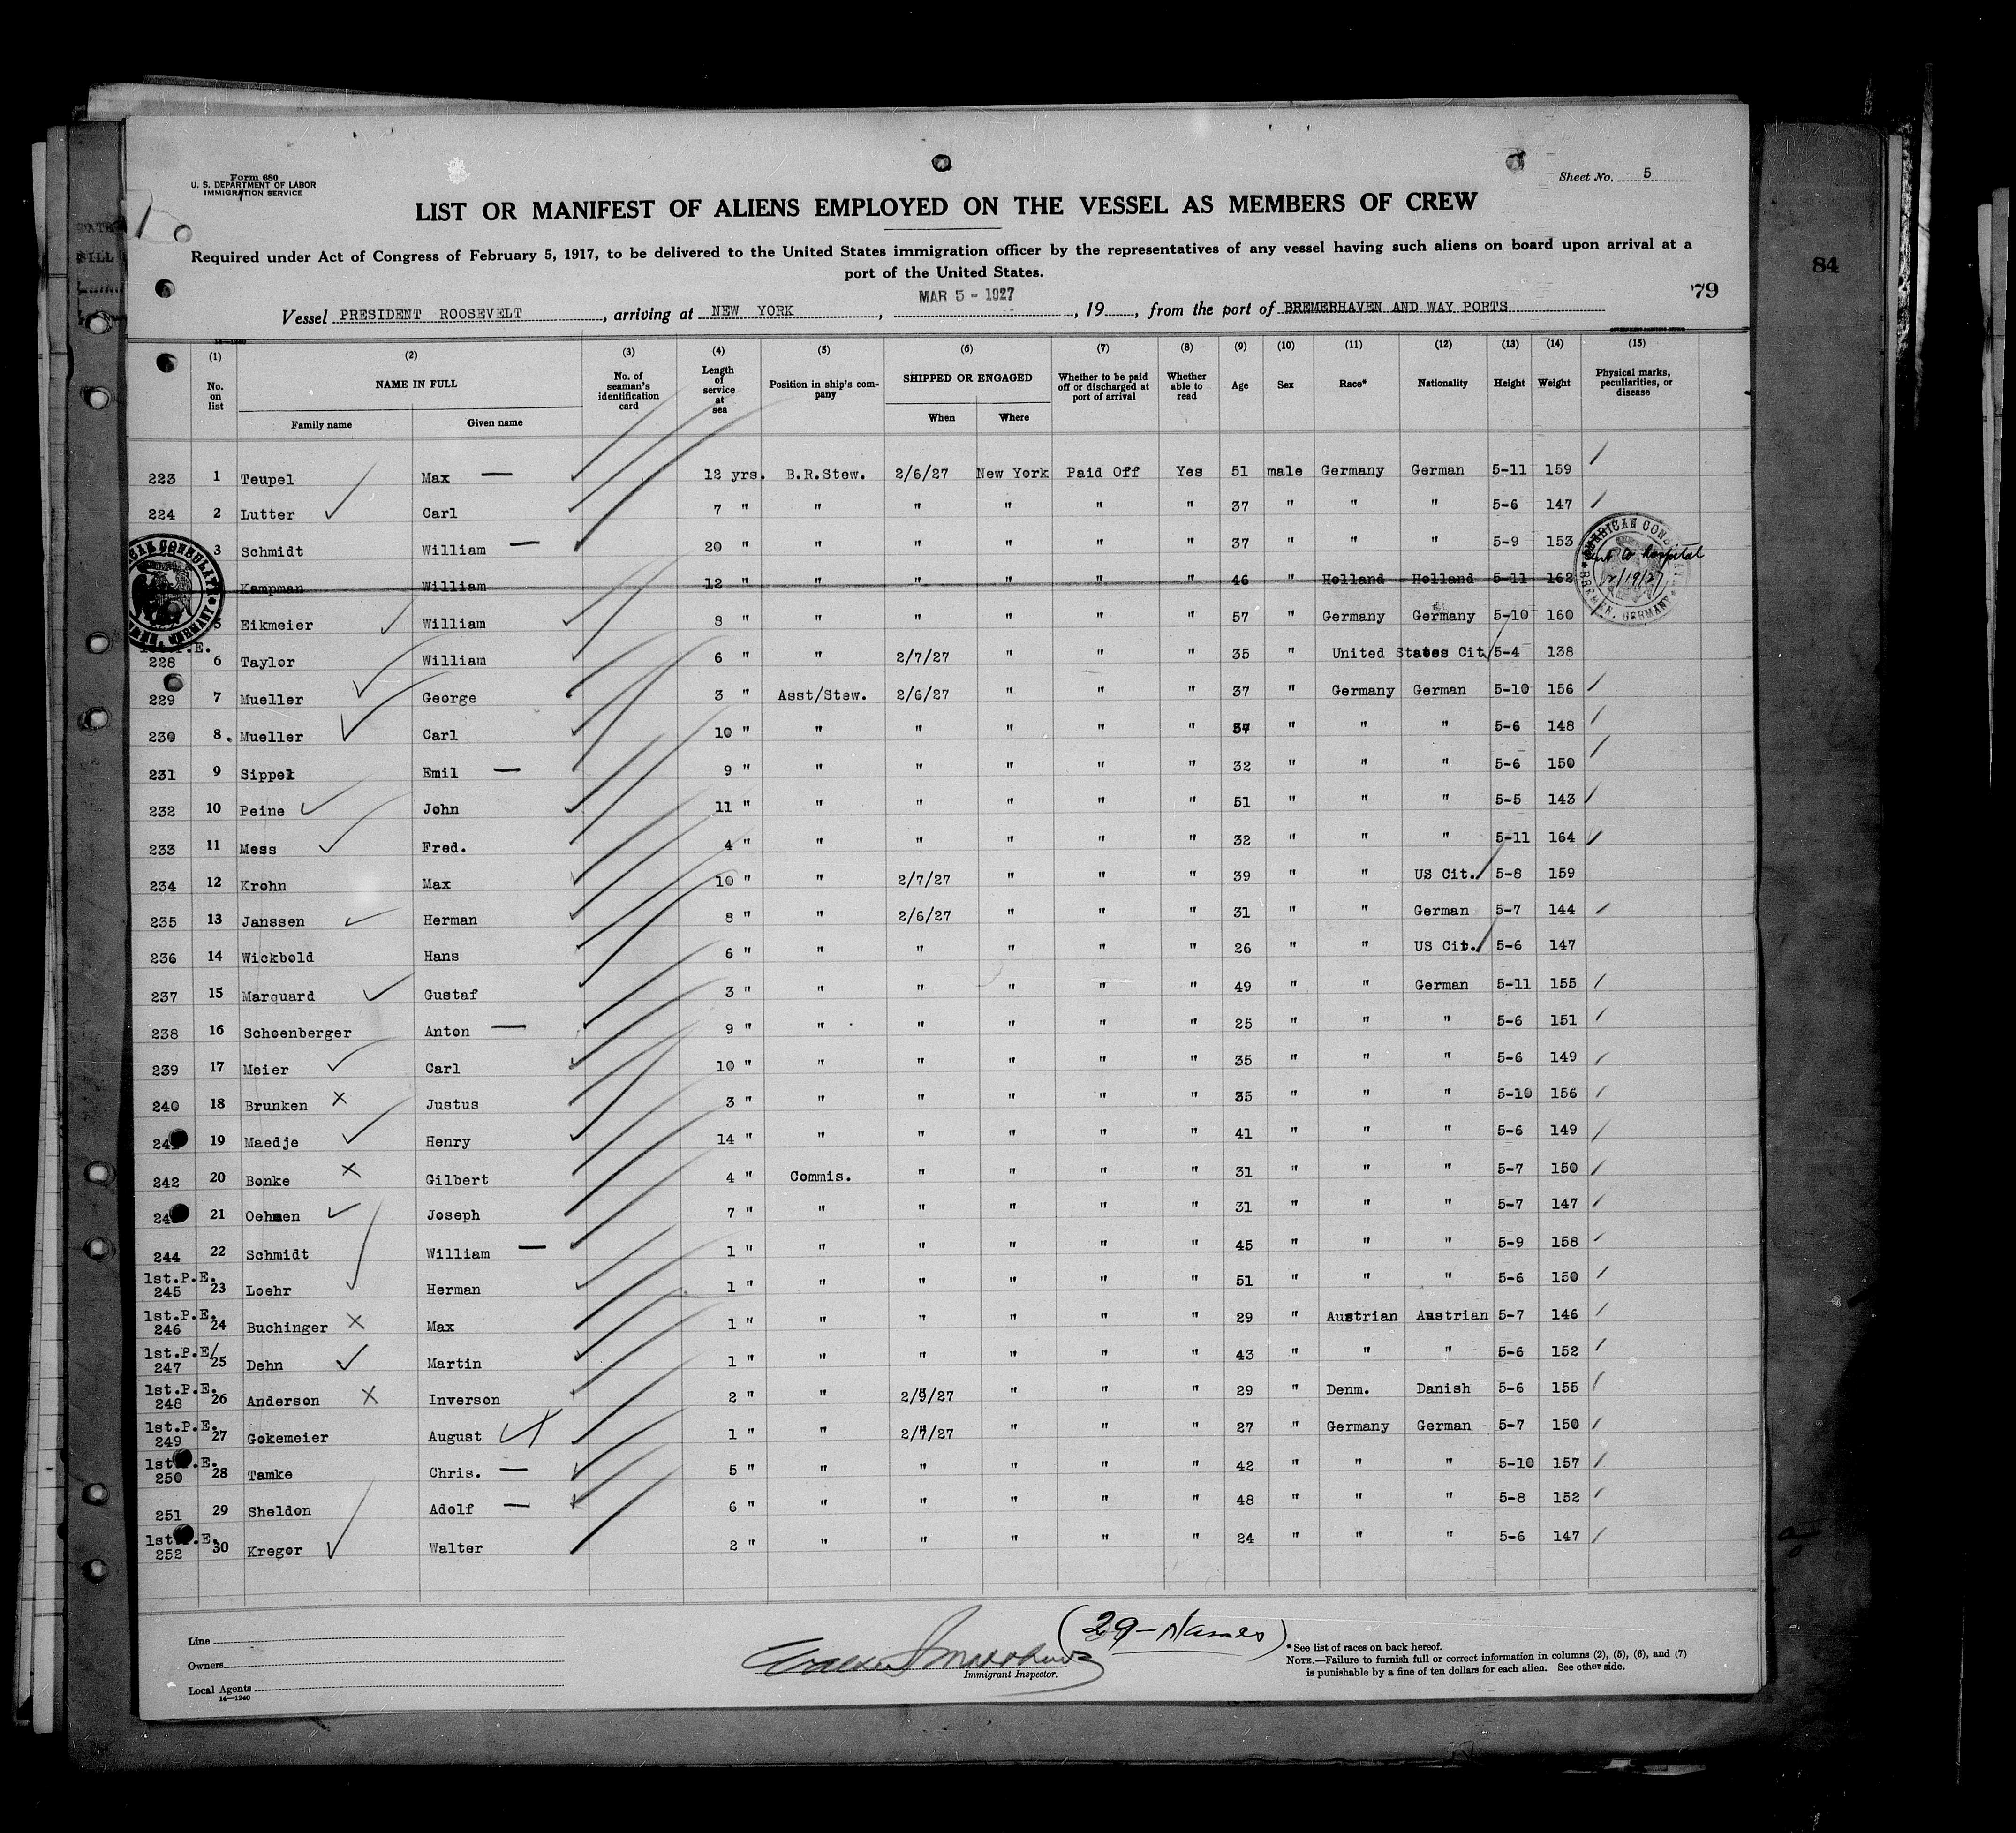 Form 680
U. S. DEPARTMENT OF LABOR
IMMIGRATION SERVICE
Sheet No. 5
LIST OR MANIFEST OF ALIENS EMPLOYED ON THE VESSEL AS MEMBERS OF CREW
Required under Act of Congress of February 5, 1917, to be delivered to the United States immigration officer by the representatives of any vessel having such aliens on board upon arrival at a
port of the United States.
84
79
MAR 5 - 1927
Vessel PRESIDENT ROOSEVELT, arriving at NEW YORK, , 19 , from the port of BREMERHAVEN AND WAY PORTS
14-1240
(1) (2) (3) (4) (5) (6) (7) (8) (9) (10) (11) (12) (13) (14) (15)
No. on list NAME IN FULL No. of seaman's identification card Length of service at sea Position in ship's company SHIPPED OR ENGAGED Whether to be paid off or discharged at port of arrival Whether able to read Age Sex Race* Nationality Height Weight Physical marks, peculiarities, or disease
Family name Given name When Where
223 1 Teupel Max — 12 yrs. B.R.Stew. 2/6/27 New York Paid Off Yes 51 male Germany German 5-11 159
224 2 Lutter Carl 7 " " " " " " 37 " " " 5-6 147
3 Schmidt William — 20 " " " " " " 37 " " " 5-9 153
Kampman William 12 " " " " " " 46 " Holland Holland 5-11 162 to hospital 2/19/27
AMERICAN CONSULATE BREMEN, GERMANY
5 Eikmeier William 8 " " " " " " 57 " Germany Germany 5-10 160
P.E.
228 6 Taylor William 6 " " 2/7/27 " " " 35 " United States Cit. 5-4 138
229 7 Mueller George 3 " Asst/Stew. 2/6/27 " " " 37 " Germany German 5-10 156
230 8. Mueller Carl 10 " " " " " " " " " 5-6 148
231 9 Sippel Emil — 9 " " " " " " 32 " " " 5-6 150
232 10 Peine John 11 " " " " " " 51 " " " 5-5 143
233 11 Mess Fred. 4 " " " " " " 32 " " " 5-11 164
234 12 Krohn Max 10 " " 2/7/27 " " " 39 " " US Cit. 5-8 159
235 13 Janssen Herman 8 " " 2/6/27 " " " 31 " " German 5-7 144
236 14 Wickbold Hans 6 " " " " " " 26 " " US Cit. 5-6 147
237 15 Marquard Gustaf 3 " " " " " " 49 " " German 5-11 155
238 16 Schoenberger Anton — 9 " " " " " " 25 " " " 5-6 151
239 17 Meier Carl 10 " " " " " " 35 " " " 5-6 149
240 18 Brunken X Justus 3 " " " " " " 35 " " " 5-10 156
24 19 Maedje Henry 14 " " " " " " 41 " " " 5-6 149
242 20 Bonke X Gilbert 4 " Commis. " " " " 31 " " " 5-7 150
24 21 Oehmen Joseph 7 " " " " " " 31 " " " 5-7 147
244 22 Schmidt William — 1 " " " " " " 45 " " " 5-9 158
1st.P.E.
245 23 Loehr Herman 1 " " " " " " 51 " " " 5-6 150
1st.P.E.
246 24 Buchinger X Max 1 " " " " " " 29 " Austrian Austrian 5-7 146
1st.P.E/
247 25 Dehn Martin 1 " " " " " " 43 " " " 5-6 152
1st.P.E.
248 26 Anderson X Inverson 2 " " " " " 29 " Denm. Danish 5-6 155
1st.P.E.
249 27 Gokemeier August 1 " " " " " 27 " Germany German 5-7 150
1st.P.E.
250 28 Tamke Chris. — 5 " " " " " " 42 " " " 5-10 157
251 29 Sheldon Adolf — 6 " " " " " " 48 " " " 5-8 152
1st.P.E.
252 30 Kreger Walter 2 " " " " " " 24 " " " 5-6 147
(29-Names)
Line
Owners
Local Agents
14-1240
Immigrant Inspector.
* See list of races on back hereof.
NOTE.—Failure to furnish full or correct information in columns (2), (5), (6), and (7)
is punishable by a fine of ten dollars for each alien. See other side.